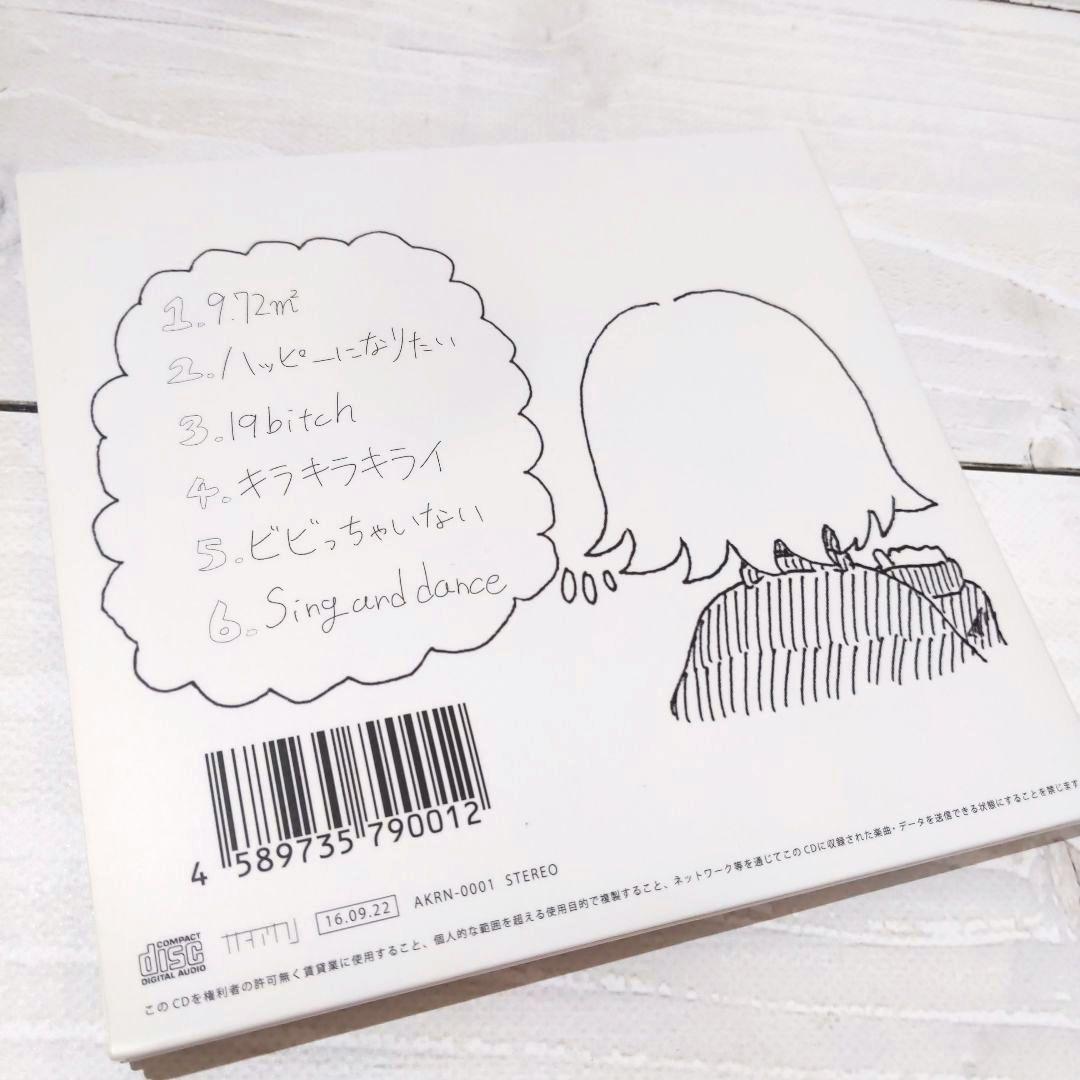 1. 9.72㎡
2. ハッピーになりたい
3. 19bitch
4. キラキラキライ
5. ビビっちゃいない
6. Sing and dance
4 589735 790012
COMPACT
disc
DIGITAL AUDIO
16.09.22 AKRN-0001 STEREO
このCDを権利者の許可無く賃貸業に使用すること、個人的な範囲を超える使用目的で複製すること、ネットワーク等を通じてこのCDに収録された楽曲・データを送信できる状態にすることを禁じます